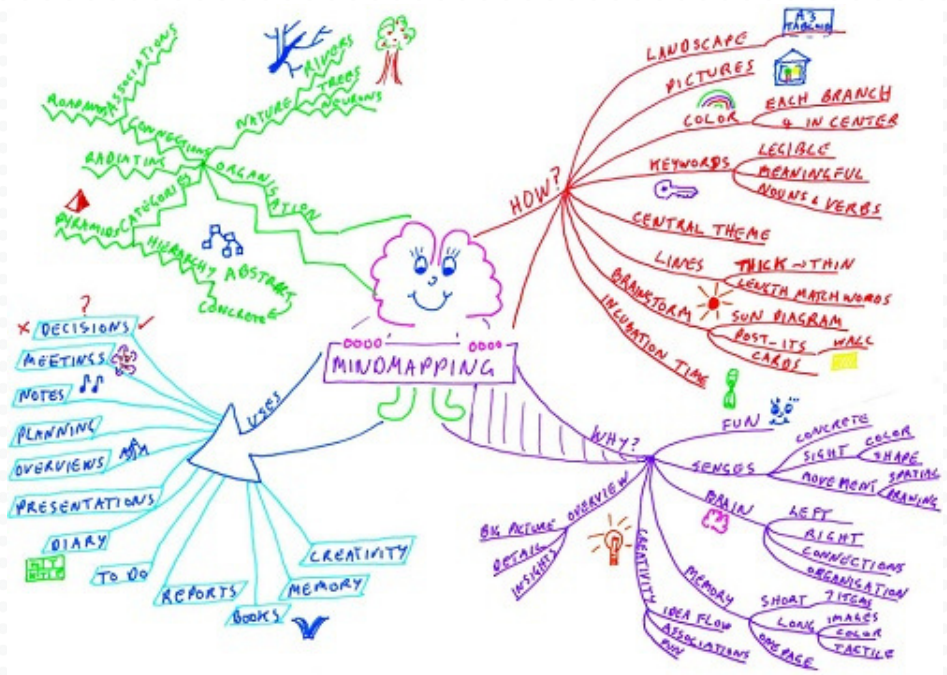 MINDMAPPING
ORGANISATION
NATURE
RIVERS
TREES
NEURONS
CONNECTIONS
ASSOCIATIONS
ROADMAPS
RADIATING
CATEGORIES
PYRAMIDS
HIERARCHY
ABSTRACT
CONCRETE
HOW?
LANDSCAPE
A3
TABLOID
PICTURES
COLOR
EACH BRANCH
4 IN CENTER
KEYWORDS
LEGIBLE
MEANINGFUL
NOUNS & VERBS
CENTRAL THEME
LINES
THICK → THIN
LENGTH MATCH WORDS
BRAINSTORM
SUN DIAGRAM
POST-ITS
WALL
CARDS
INCUBATION TIME
WHY?
FUN
SENSES
CONCRETE
SIGHT
COLOR
SHAPE
MOVEMENT
SPATIAL
DRAWING
BRAIN
LEFT
RIGHT
CONNECTIONS
ORGANISATION
MEMORY
SHORT
7 ITEMS
LONG
IMAGES
COLOR
TACTILE
ONE PAGE
CREATIVITY
IDEA FLOW
ASSOCIATIONS
FUN
OVERVIEW
BIG PICTURE
DETAIL
INSIGHTS
USES
?
DECISIONS
MEETINGS
NOTES
PLANNING
OVERVIEWS
PRESENTATIONS
DIARY
TO DO
REPORTS
BOOKS
MEMORY
CREATIVITY